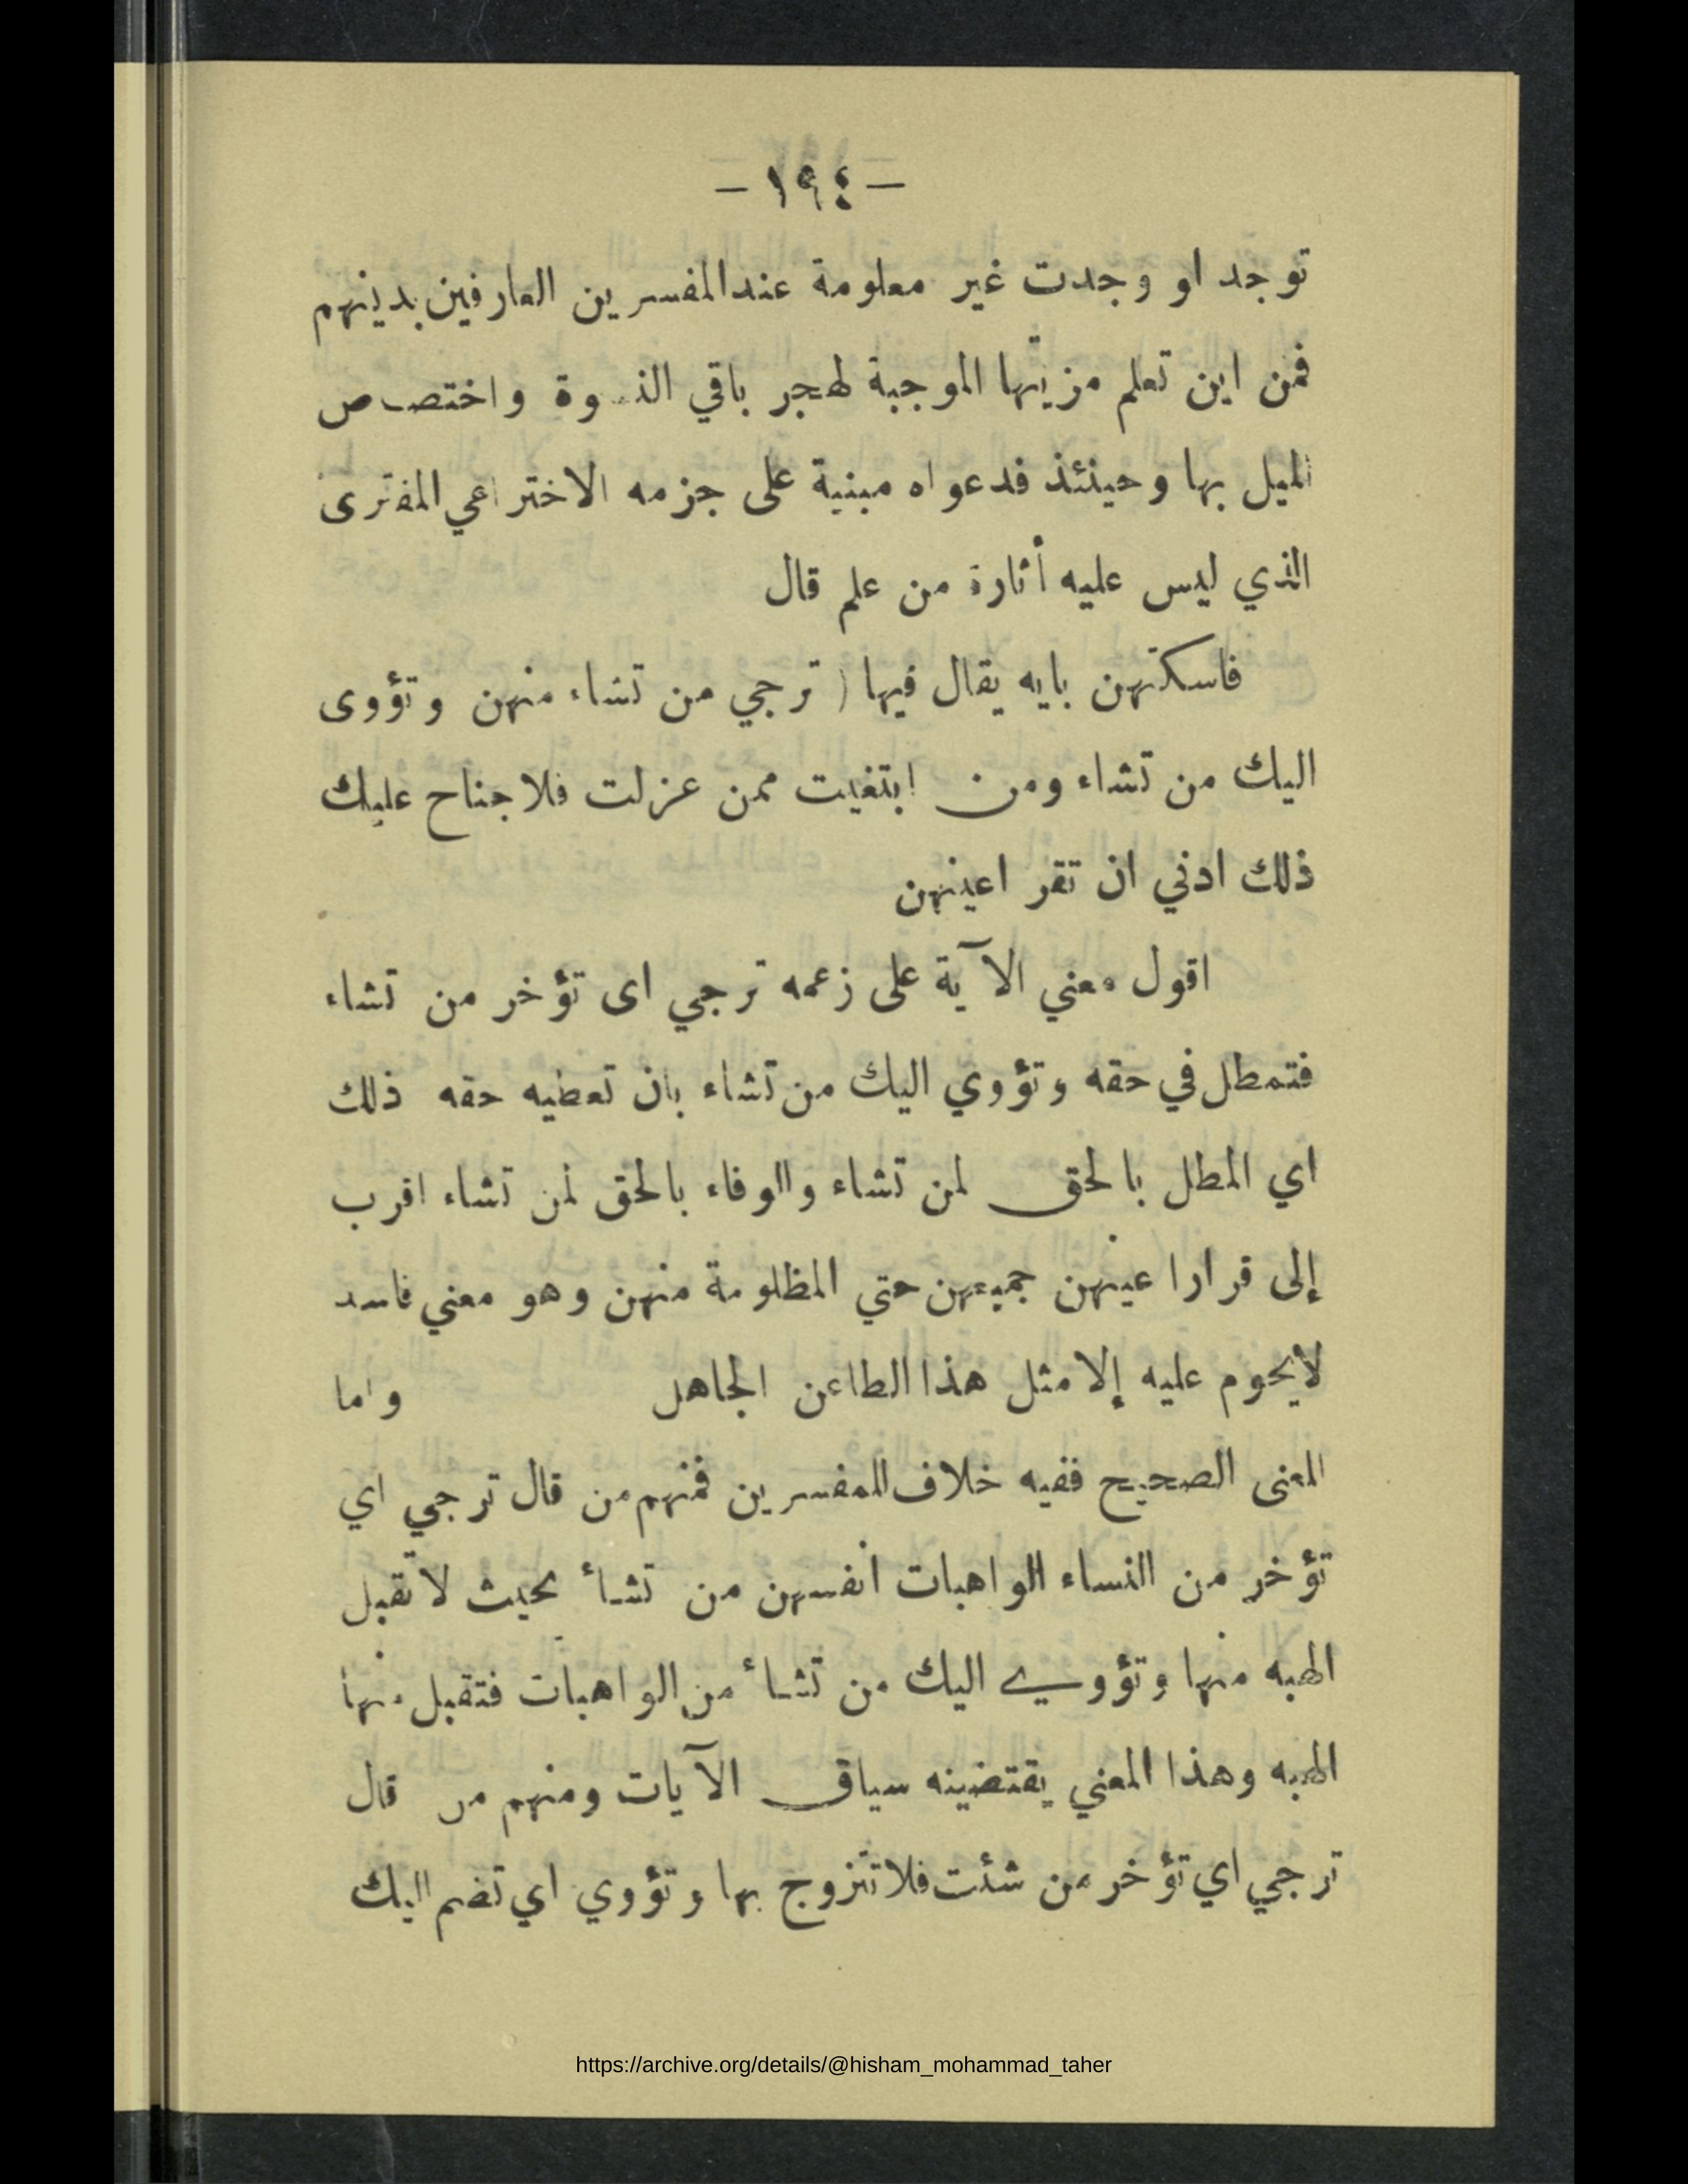 — ١٩٤ —
توجد او وجدت غير معلومة عند المفسرين العارفين بدينهم
فمن اين تعلم مزيتها الموجبة لهجر باقي واختصاص
الميل بها وحينئذ فدعواه مبنية على جزمه الاختراعي المفترى
الذي ليس عليه أثارة من علم قال
فاسكتهن بايه يقال فيها ( ترجي من تشاء منهن وتؤوى
اليك من تشاء ومن ابتغيت ممن عزلت فلا جناح عليك
ذلك ادني ان تقر اعينهن
اقول معني الآية على زعمه ترجي اى تؤخر من تشاء
فتمطل في حقه وتؤوي اليك من تشاء بان تعطيه حقه ذلك
اي المطل بالحق لمن تشاء والوفاء بالحق لمن تشاء اقرب
إلى قرارا عينهن جميعهن حتي المظلومة منهن وهو معني فاسد
لايحوم عليه إلا مثل هذا الطاعن الجاهل واما
المعنى الصحيح ففيه خلاف للمفسرين فمنهم من قال ترجي اي
تؤخر من النساء الواهبات انفسهن من تشأ بحيث لا تقبل
الهبه منها وتؤوي اليك من تشأ من الواهبات فتقبل منها
الهبه وهذا المعني يقتضينه سياق الآيات ومنهم من قال
ترجي اي تؤخر من شئت فلا تتزوج بها وتؤوي اي تضم اليك
https://archive.org/details/@hisham_mohammad_taher